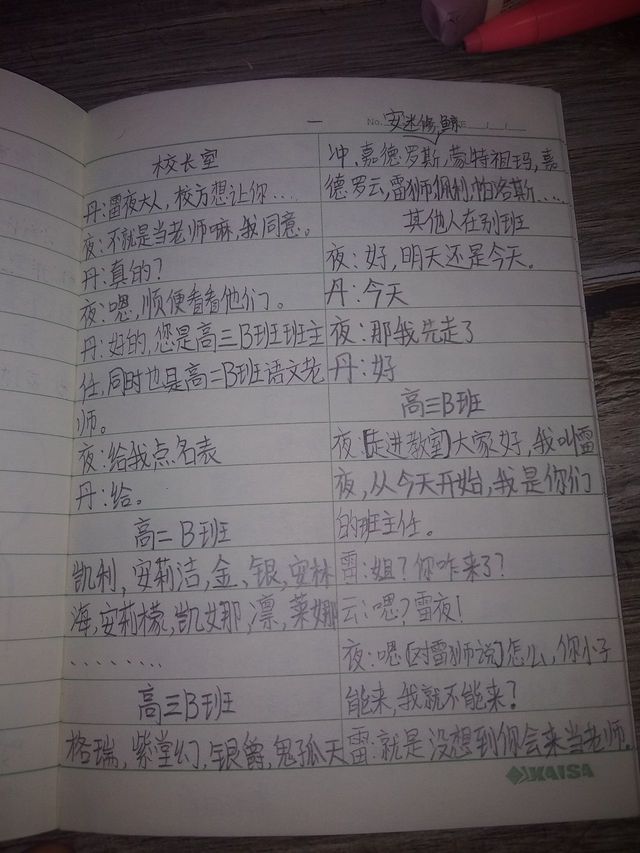 一
No.
安迷修,鲸
校长室
丹:雷夜大人,校方想让你....
夜:不就是当老师嘛,我同意。
丹:真的?
夜:嗯,顺便看看他们。
丹:好的,您是高三B班班主
任,同时也是高二B班语文老
师。
夜:给我点名表
丹:给。
高二B班
凯利,安莉洁,金、银,安林
海,安莉檬,凯女那,凛,莱娜
........
高三B班
格瑞,紫堂幻,银爵,鬼狐天
冲,嘉德罗斯,蒙特祖玛,嘉
德罗云,雷狮,佩利,帕洛斯.....
其他人在别班
夜:好,明天还是今天。
丹:今天
夜:那我先走了
丹:好
高三B班
夜:[走进教室]大家好,我叫雷
夜,从今天开始,我是你们
的班主任。
雷:姐?你咋来了?
云:嗯?雪夜!
夜:嗯[对雷狮说]怎么,你小子
能来,我就不能来?
雷:就是没想到你会来当老师。
KAISA